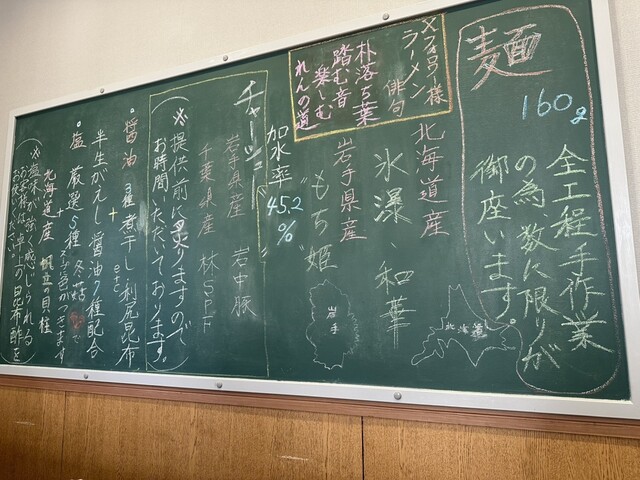 麺
160g
全工程手作業
の為、数に限りが
御座います。
Xフォロワー様
ラーメン
俳句
朴落ち葉
踏む音
楽しむ
れんの道
北海道産
氷瀑、和華
北海道
岩手県産
"もち姫"
岩手
加水率
45.2
%
チャーシュー
岩手県産 岩中豚
千葉県産 林SPF
(※提供前に炙りますので
お時間いただいております。)
。醤油 3種煮干し利尻昆布
+ etc
半生がえし 醤油7種配合
。塩 厳選5種 冬菇で
+
北海道産 帆立貝柱
(※塩味が強く感じられる
お客様は卓上の昆布酢を
お使いください。)